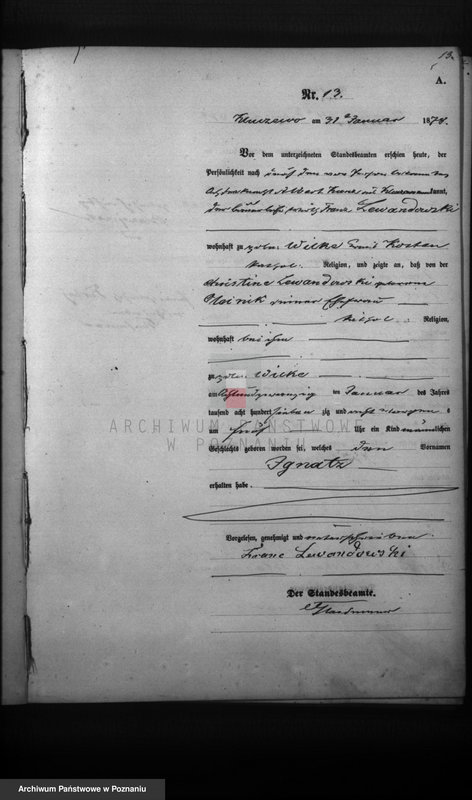 13.
A.
Nr. 13.
am 31 Januar 1878.
Vor dem unterzeichneten Standesbeamten erschien heute, der
Persönlichkeit nach durch den von Person bekannten
Albert kannt,
der Franz Lewandowski
wohnhaft zu poln: Wilke Kreis Kosten
Religion, und zeigte an, daß von der
Christine Lewandowski geborene
seiner Ehefrau
Religion,
wohnhaft bei ihm
zu poln: Wilke
am achtundzwanzig ten Januar des Jahres
tausend acht hundert sieben zig und acht
um fünf Uhr ein Kind männlichen
Geschlechts geboren worden sei, welches den Vornamen
Ignatz
erhalten habe.
Vorgelesen, genehmigt und unterschrieben
Franc Lewandowski
Der Standesbeamte.
ARCHIWUM PAŃSTWOWE
W POZNANIU
Archiwum Państwowe w Poznaniu